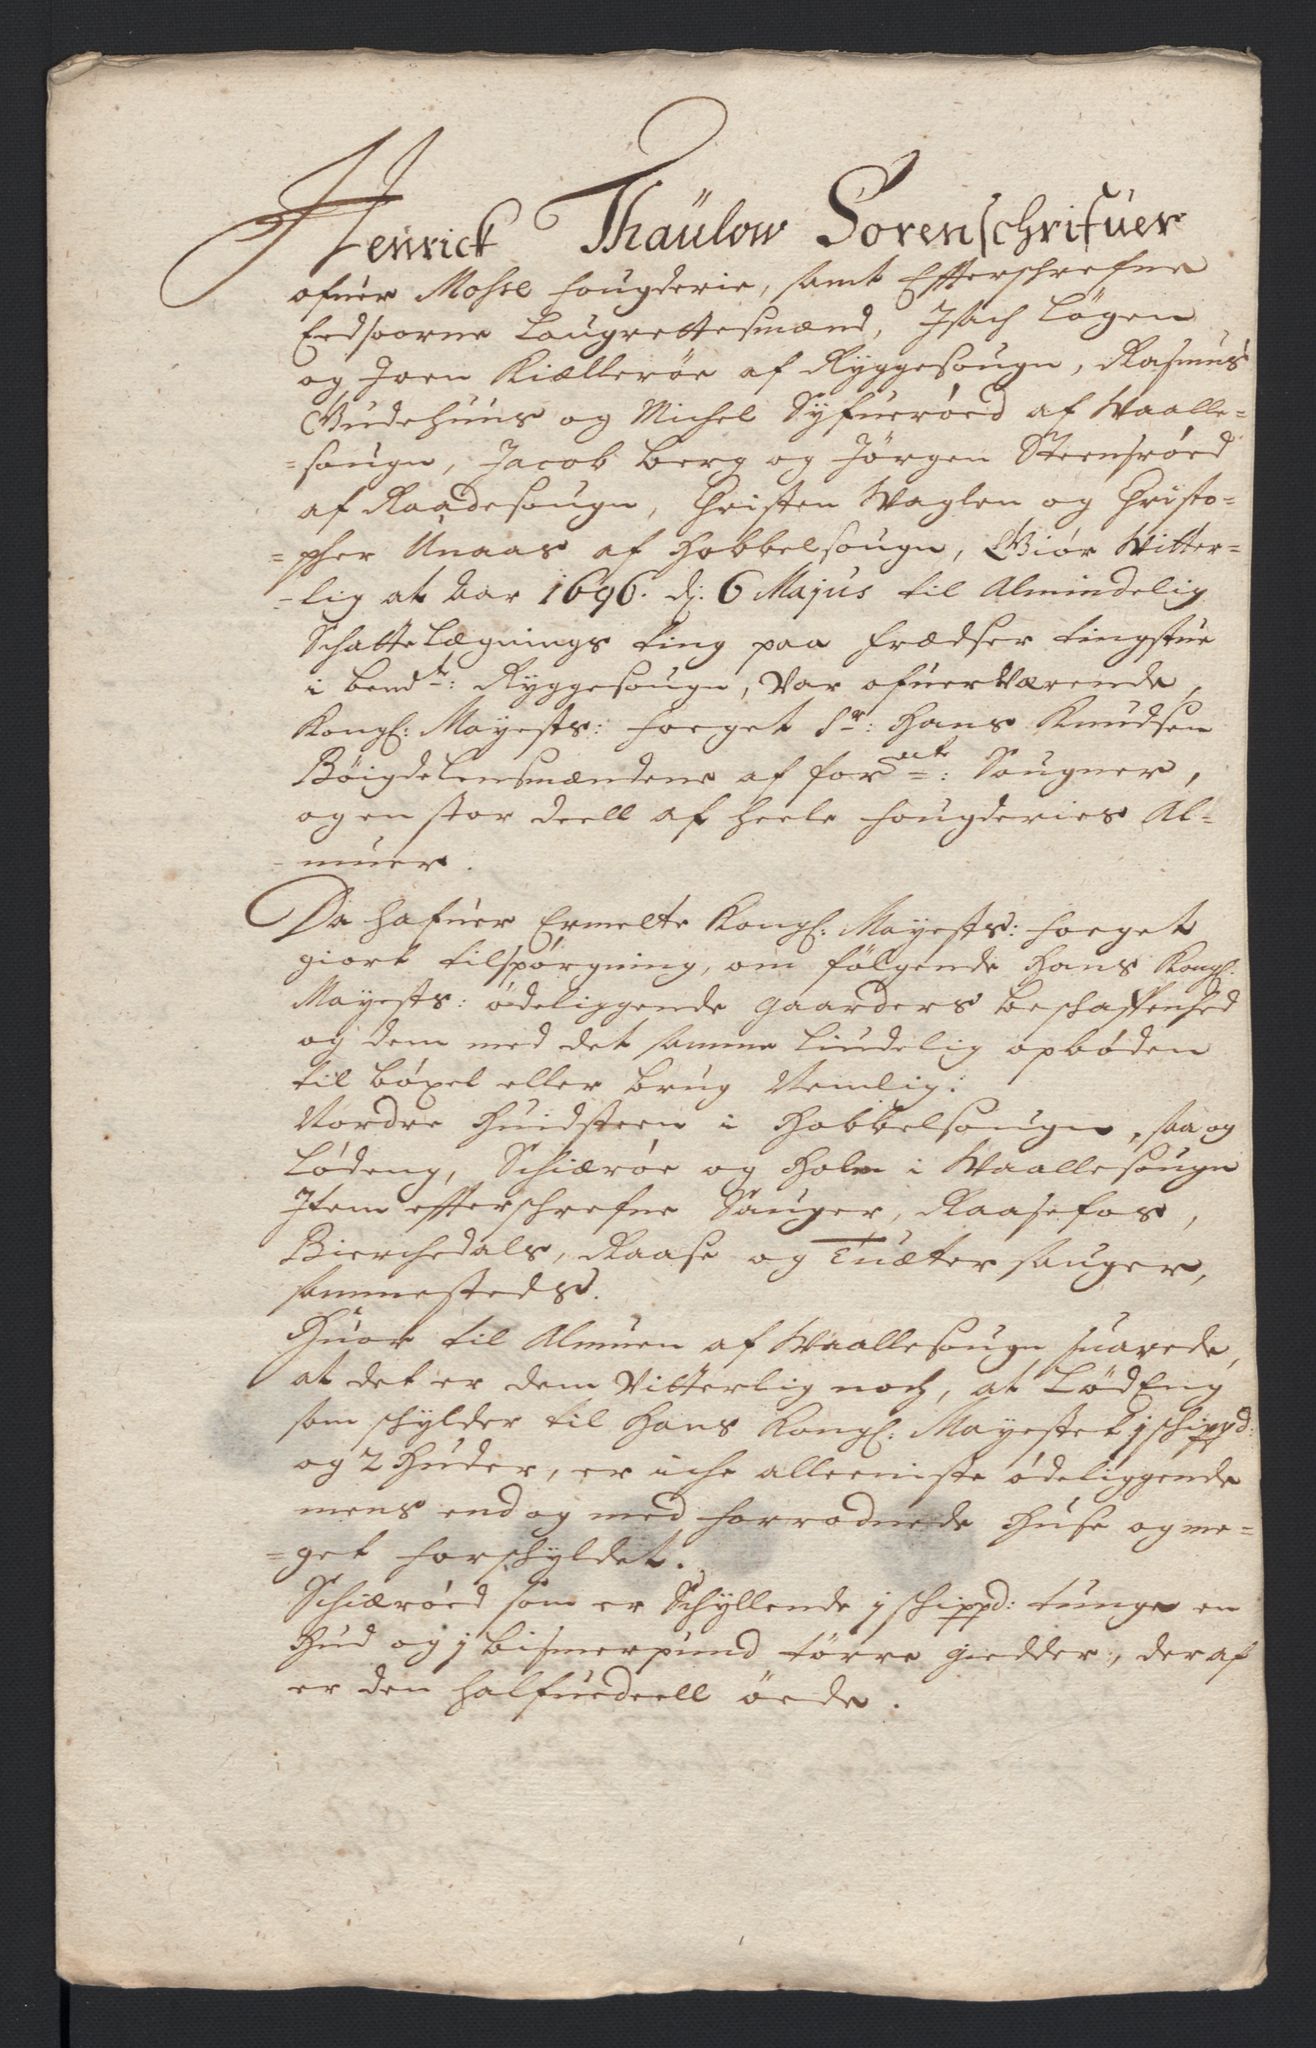 Henrick Thaülow Sorenschrifuer
ofuer Mosse fougderie, samt Effterschrefne
Eedsoorne Laugrettesmænd, Isach Løgen
og Joen Kiællerøe af Ryggesougn, Rasmus
Gudehuus og Michel Syfuerøed af Waalle-
=sougn, Jacob Berg og Jørgen Steensrøed
af Raadesougn, Christen Waglen og Christo-
=pher Unaas af Hobbelsougn, Giør Witter-
=lig at Aar 1696. d: 6 Majus til Almindelig
Schattelægnings ting paa Frædser tingstue
i bemdte: Ryggesougn, Var ofuerværende,
Kongl: Mayests: foeget Sr: Hans Knudsen
Bøigdelensmændene af forne: Sougner,
og en stor deell af heele fougderies Al-
=muer.
Da hafuer Ermelte Kongl: Mayests: foeget
giort tilspørgning, om følgende Hans Kongl:
Mayests: ødeliggende gaarders beschaffenhed
og dem med det samme liudelig opbøden
til bøxel eller brug Nemlig:
Nordre Huidsteen i Hobbelsougn, saa og
Lødeng, Schiærøe og Holm i Waallesougn
Item effterschrefne Sauger, Raasefos,
Bierchedals, Raase og Tuæter sauger,
sammesteds.
Huor til Almuen af Waallesougn suarede,
at det er dem Vitterlig noch, at LødEng
som schylder til Hans Kongl: Mayestet j schippd:
og 2 Huder, er iche alleeniste ødeliggende
mens end og med forradnede Huse og me-
=get forschyldet.
Schiærøed som er Schyllende j schippd: tunge en
Hud og j bismerpund tørre giedder, der af
er den halfuedeell øede.